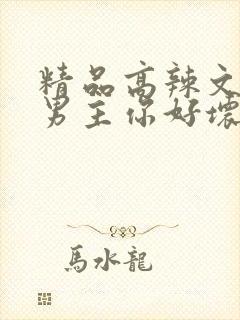 精品高辣文
男主你好壞
馬水龍